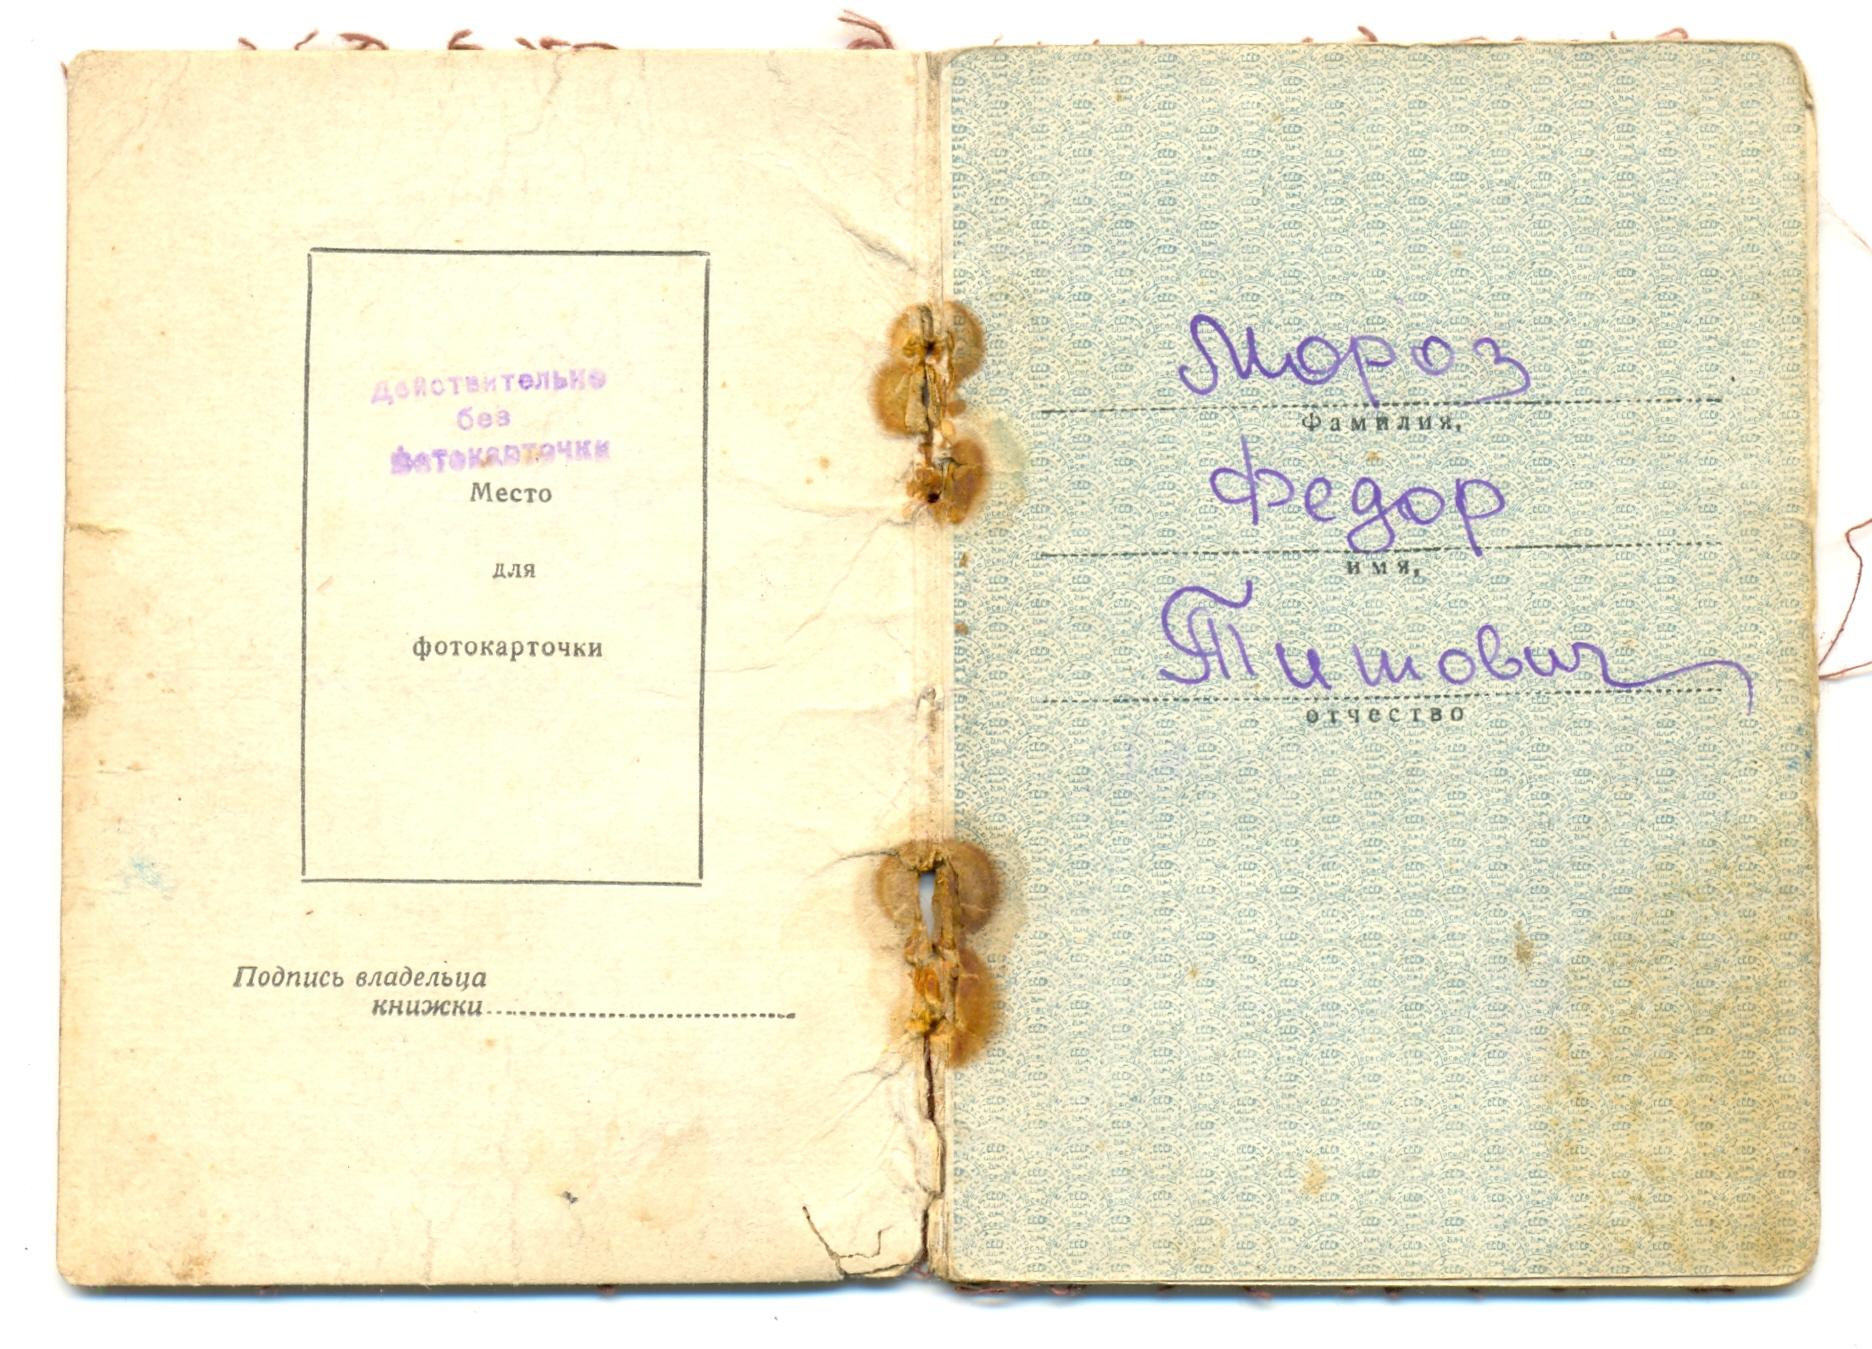 Действительно
без
фотокарточки
Место
для
фотокарточки
Подпись владельца
книжки
Мороз
Фамилия,
Федор
имя,
Титович
отчество